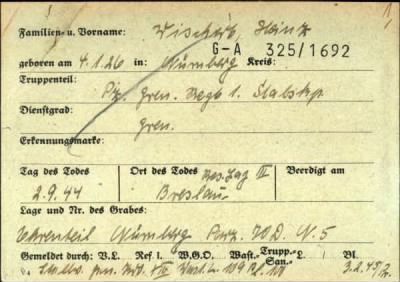 Familien- u. Vorname: Heinz
G-A 325/1692
geboren am 4.1.26 in: Nürnberg Kreis:
Truppenteil: Pz. Gren. Regt 1. Stabskp.
Dienstgrad: Gren.
Erkennungsmarke:
Tag des Todes Ort des Todes Res. Laz III Beerdigt am
2.9.44 Breslau
Lage und Nr. des Grabes:
Ehrenteil Nürnberg Parz. N. 5
Gemeldet durch: V.L. Ref I. W.G.O. Wast.- Trupp.- San.- L. Bl.
3.2.45